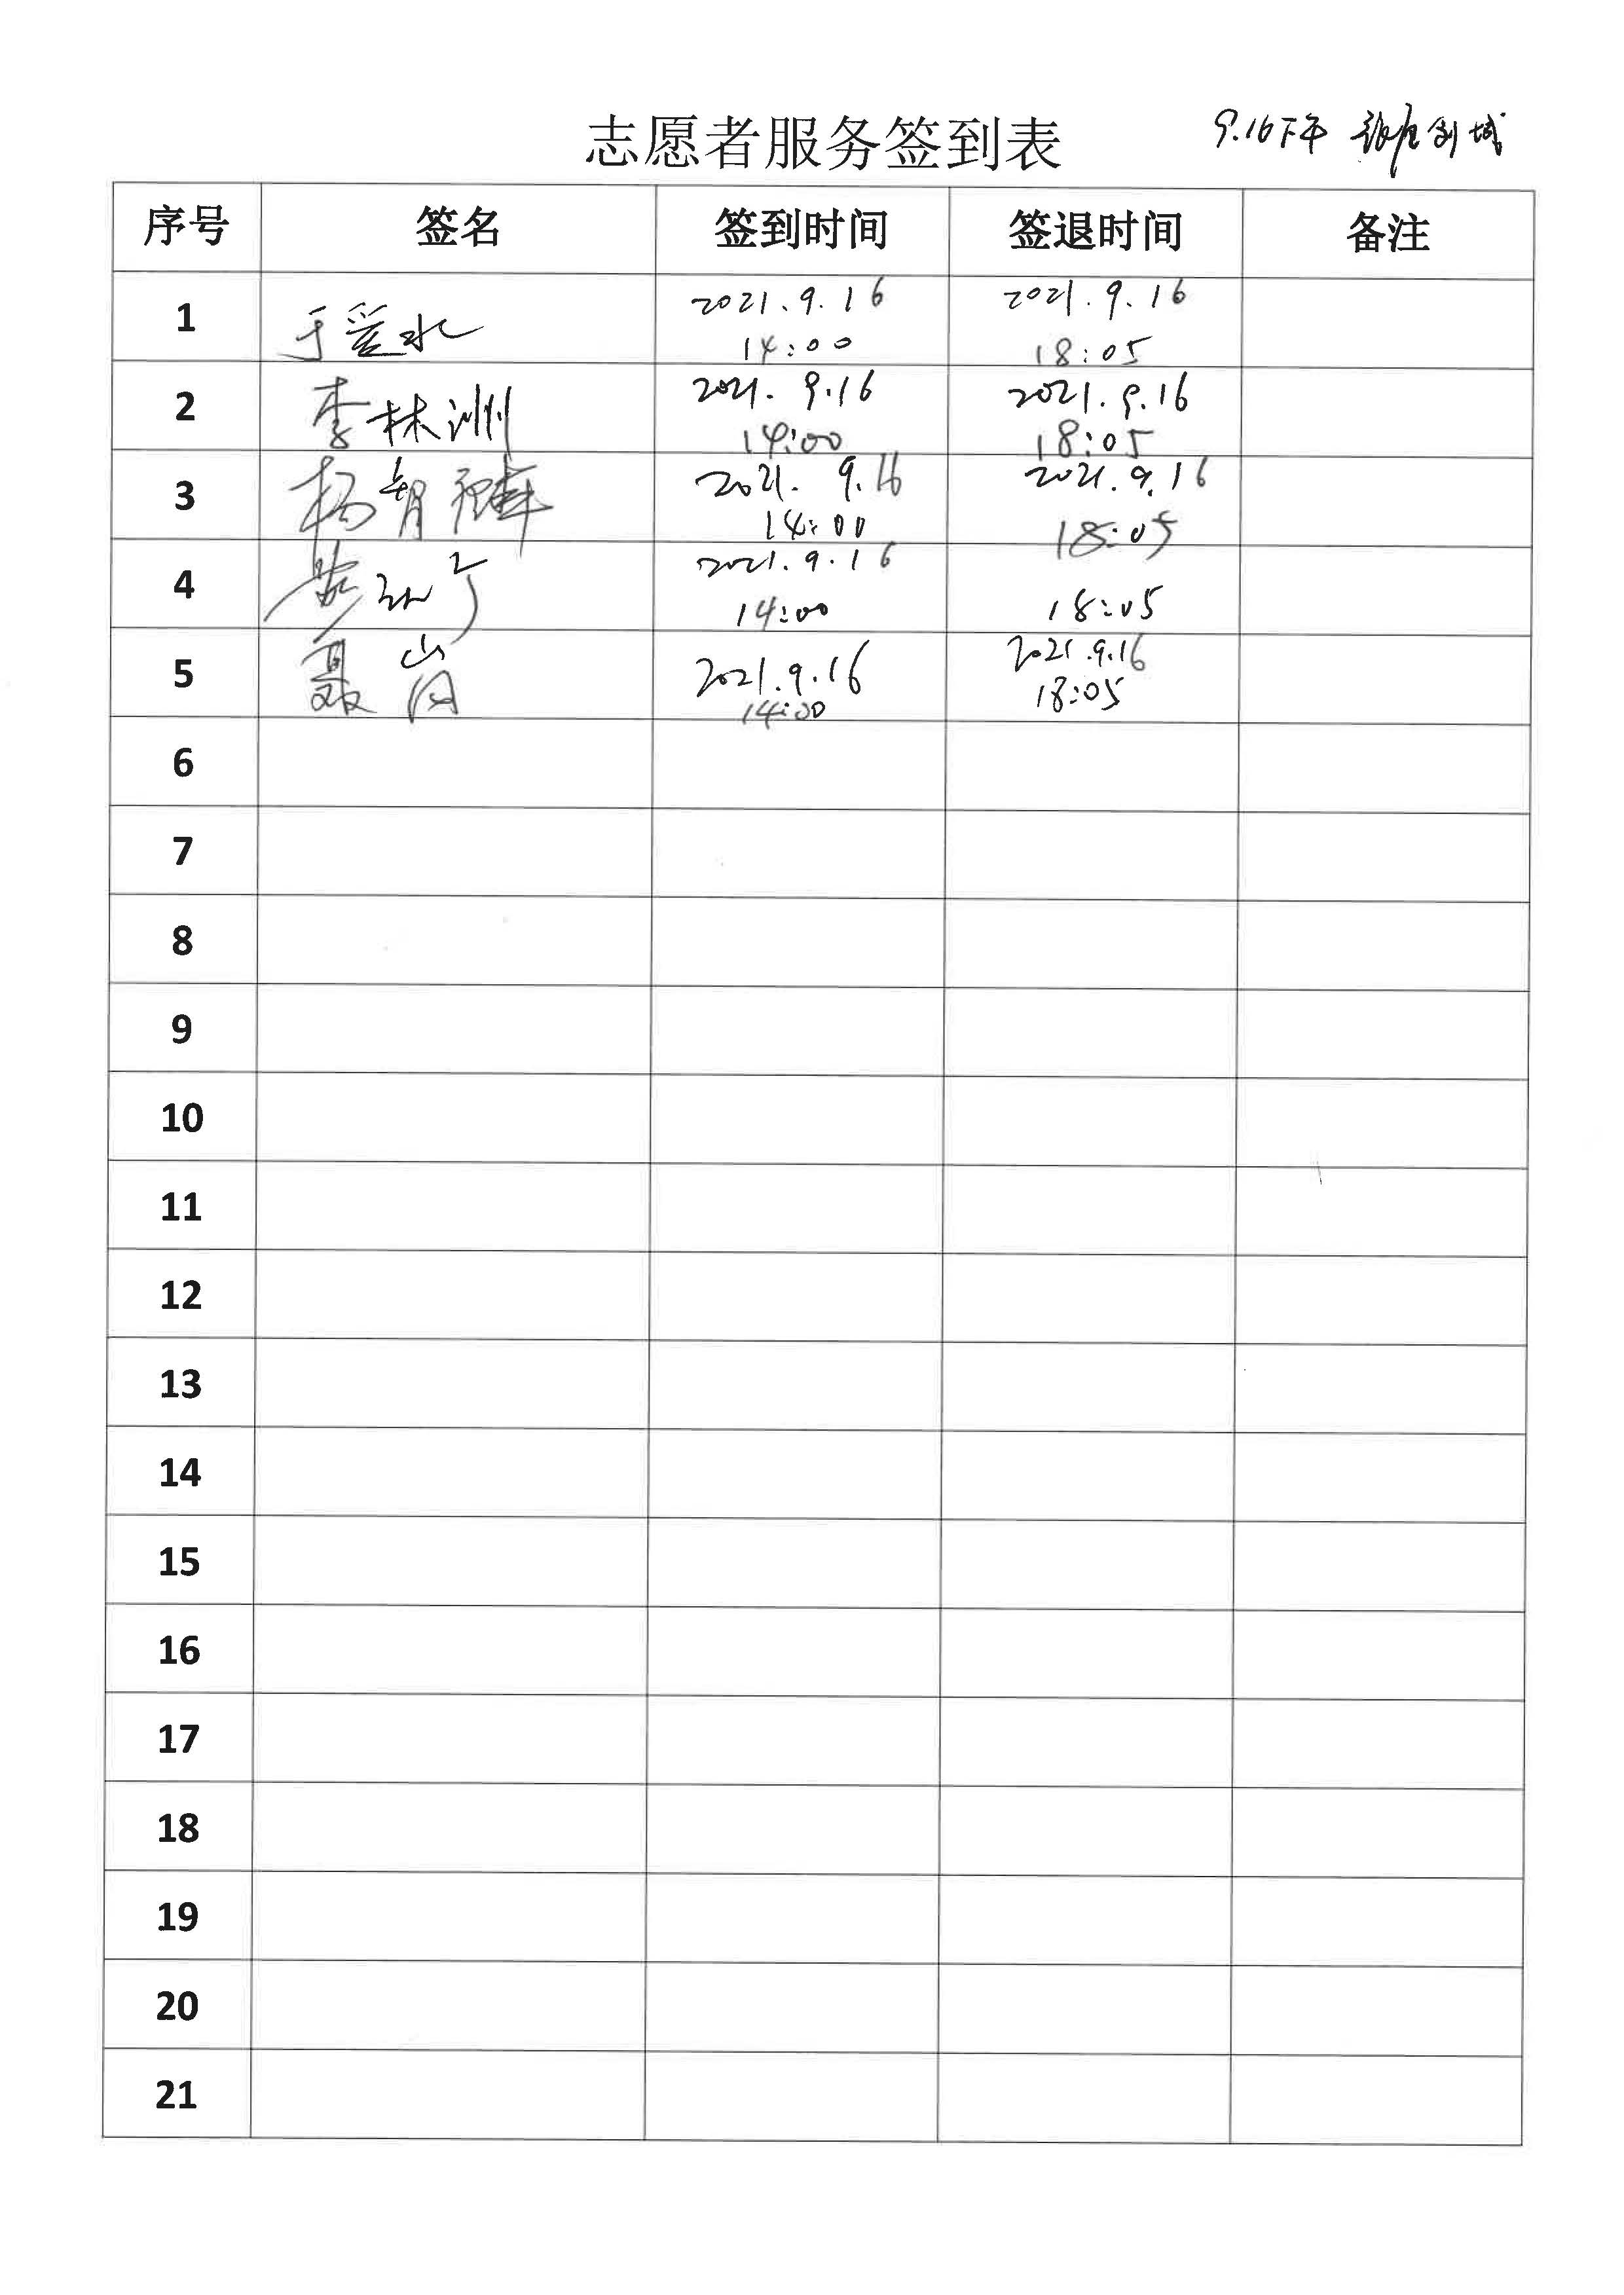 志愿者服务签到表
9.16下午 创城
序号 签名 签到时间 签退时间 备注
1 2021.9.16 2021.9.16
14:00 18:05
2 李林洲 2021.9.16 2021.9.16
14:00 18:05
3 杨 2021.9.16 2021.9.16
14:00 18:05
4 2021.9.16
14:00 18:05
5 聂 2021.9.16 2021.9.16
14:00 18:05
6
7
8
9
10
11
12
13
14
15
16
17
18
19
20
21